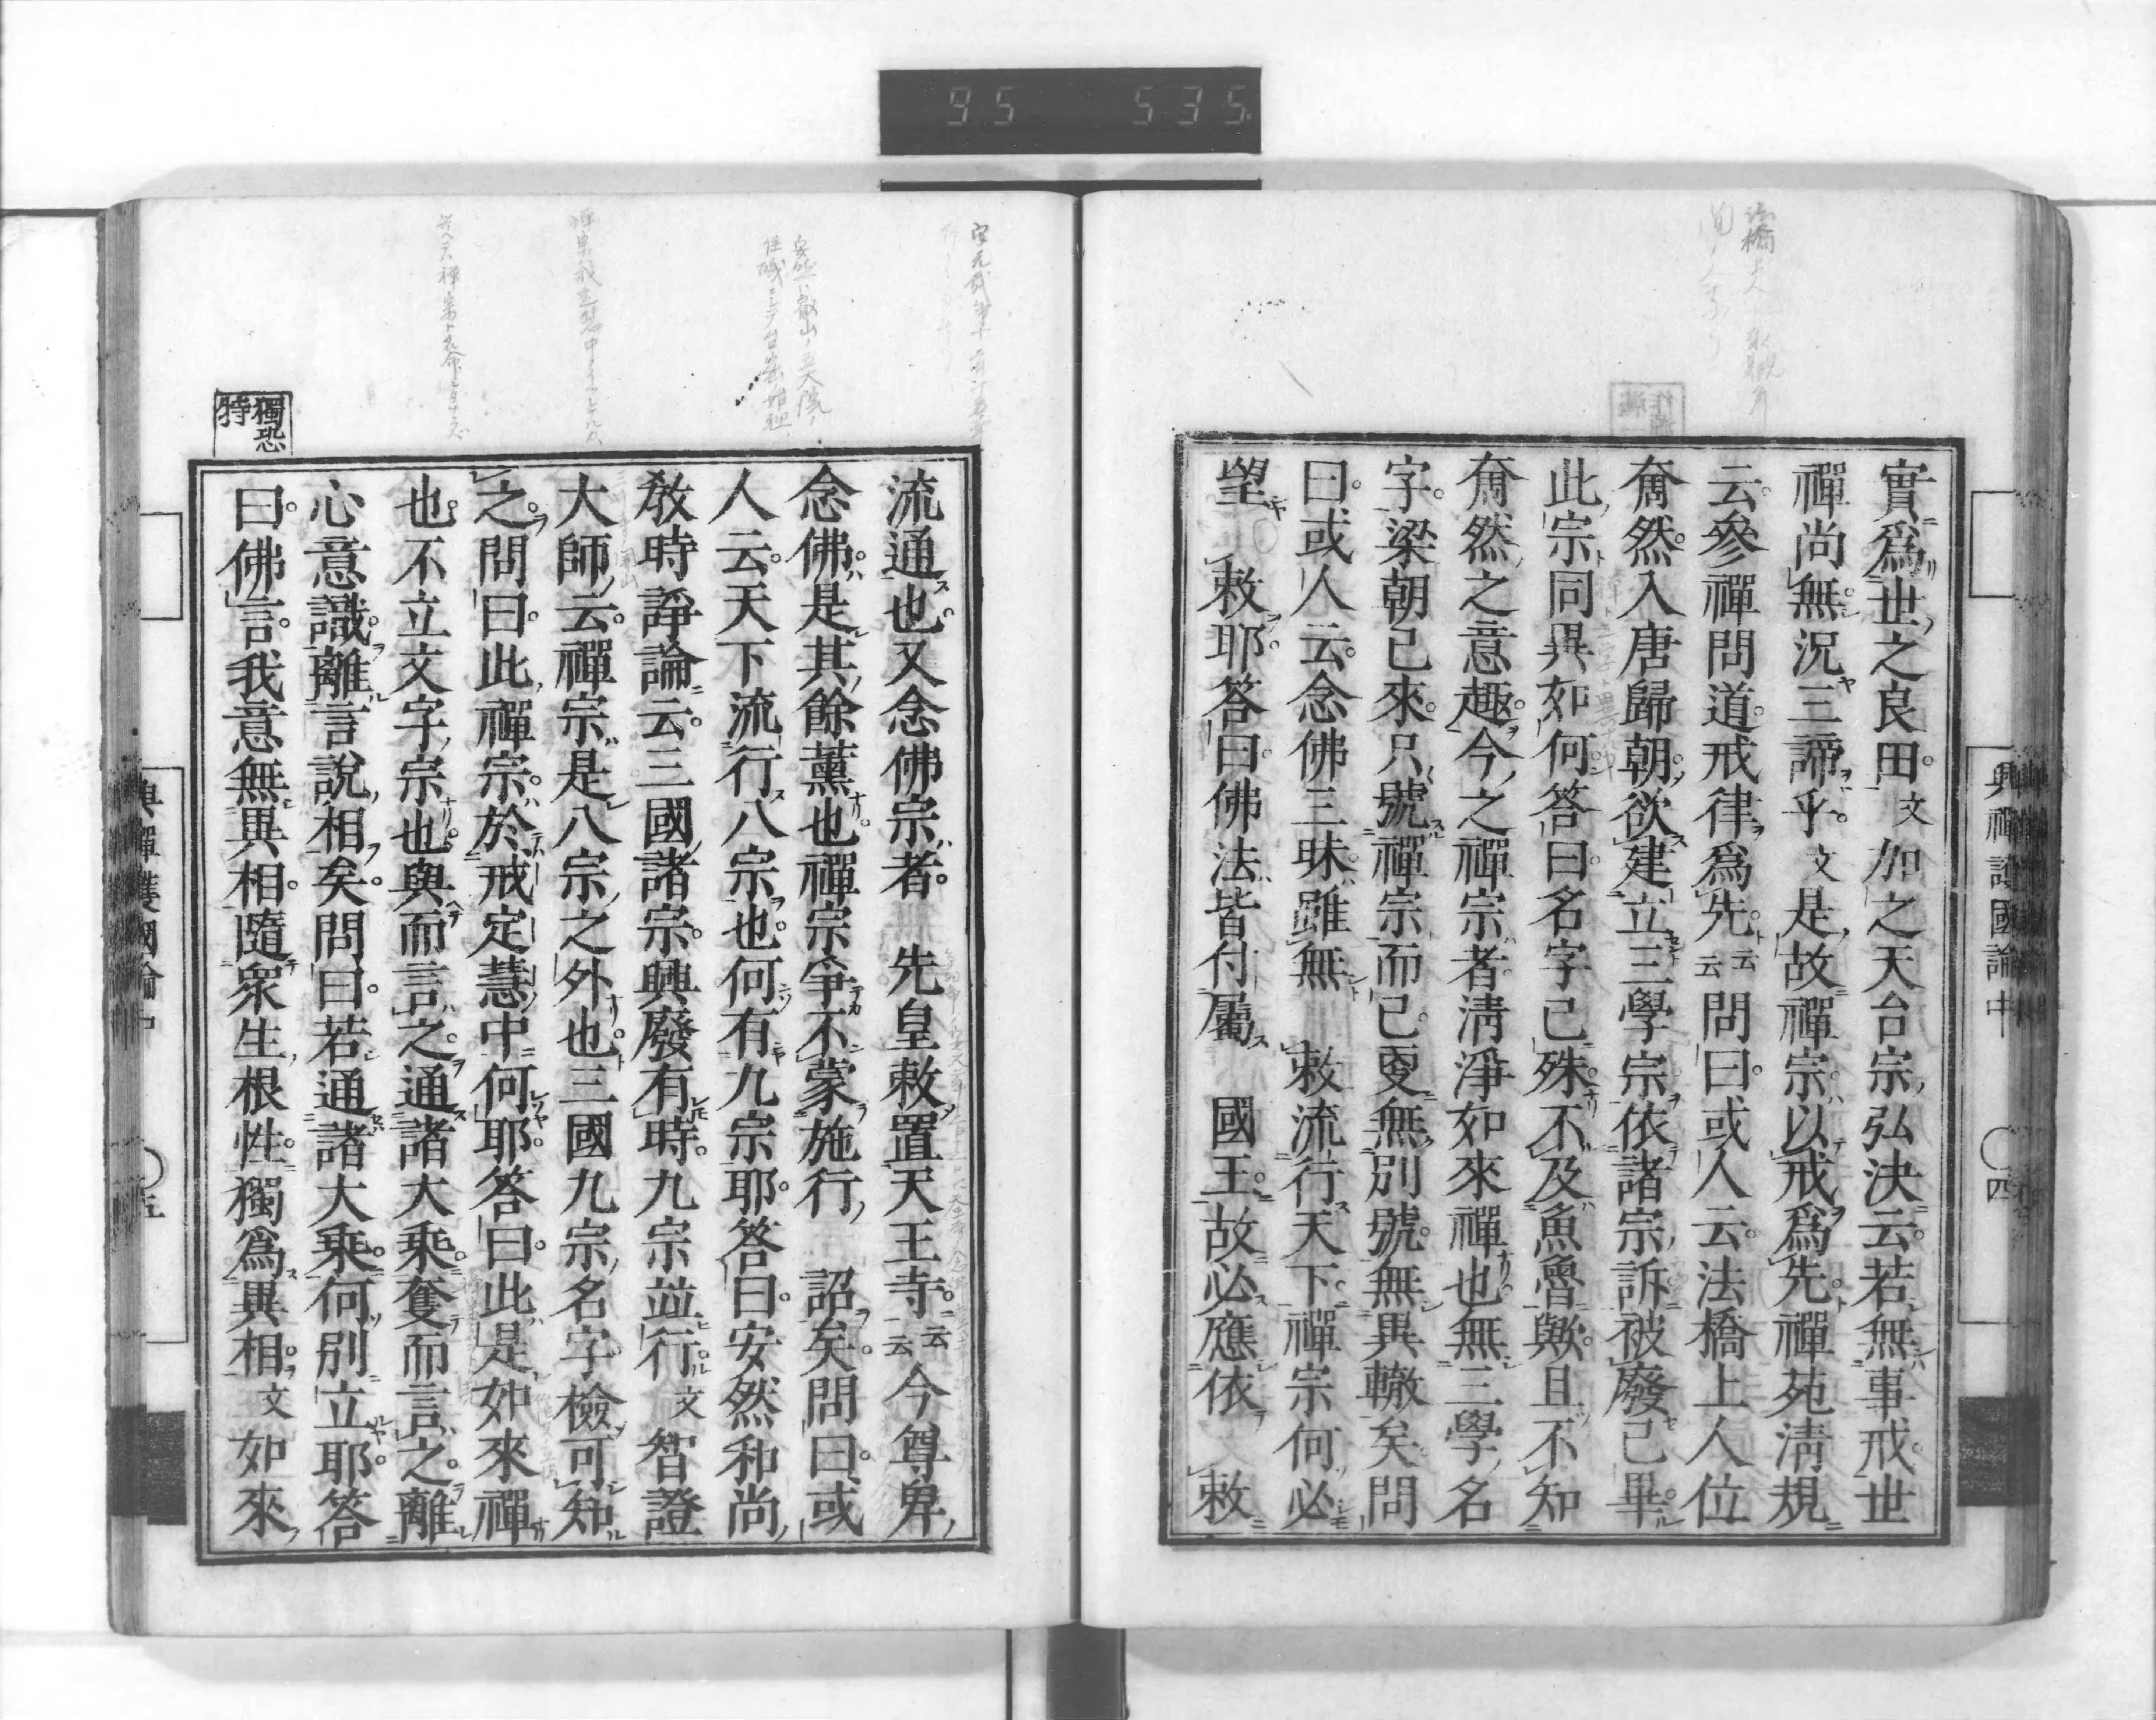 95 535
實爲世之良田文加之天台宗弘決云若無事戒世
禪尚無況三諦乎文是故禪宗以戒爲先禪苑淸規
云參禪問道戒律爲先云云問曰或人云法橋上人位
奝然入唐歸朝欲建立三學宗依諸宗訴被廢已畢
此宗同異如何答曰名字已殊不及魚魯歟且不知
奝然之意趣今之禪宗者淸淨如來禪也無三學名
字梁朝已來只號禪宗而已更無別號無異轍矣問
曰或人云念佛三昧雖無 敕流行天下禪宗何必
望 敕耶答曰佛法皆付屬 國王故必應依 敕
興禪護國論中 〇四
流通也又念佛宗者 先皇敕置天王寺云云今尊卑
念佛是其餘薰也禪宗爭不蒙施行 詔矣問曰或
人云天下流行八宗也何有九宗耶答曰安然和尚
敎時諍論云三國諸宗興廢有時九宗並行文智證
大師云禪宗是八宗之外也三國九宗名字檢可知
之問曰此禪宗於戒定慧中何耶答曰此是如來禪
也不立文字宗也與而言之通諸大乘奪而言之離
心意識離言說相矣問曰若通諸大乘何別立耶答
曰佛言我意無異相隨衆生根性獨爲異相文如來
獨恐
特
興禪護國論中 〇五